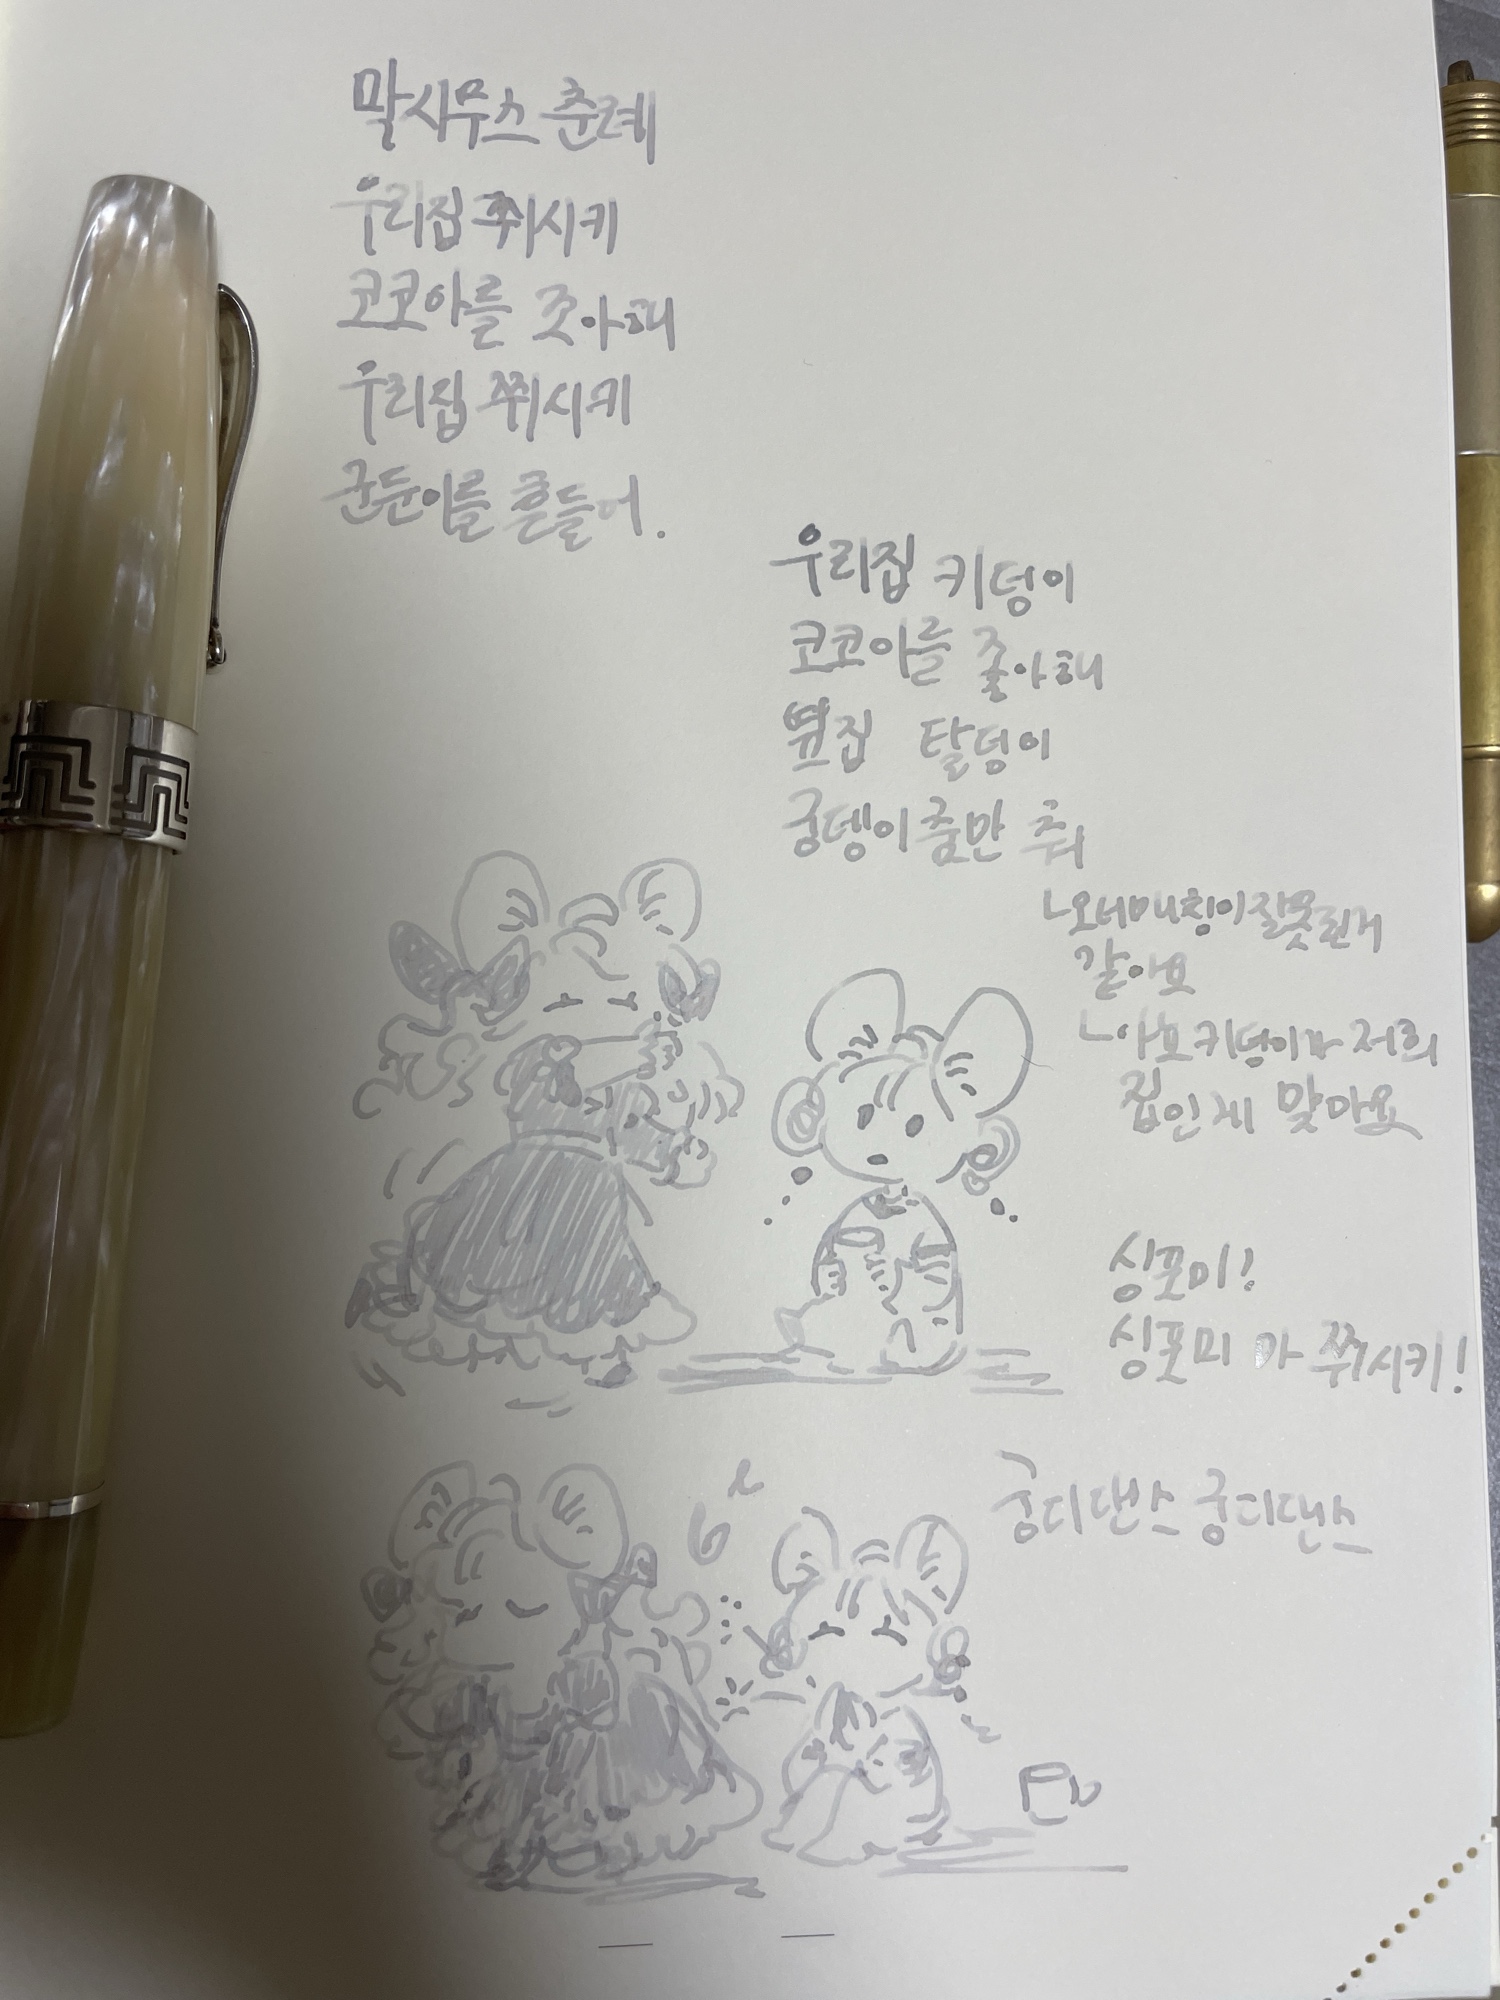 말시무스 춘례
우리집 쮜시키
코코아를 조아해
우리집 쮜시키
군둔이를 흔들어.
우리집 키덩이
코코아를 좋아해
옆집 탈덩이
궁뎅이춤만 춰
ㄴ오너매칭이 잘못된거
같아요
ㄴ아뇨 키덩이가 저희
집인게 맞아요
싱포미!
싱포미 가 쮜시키!
궁디댄스 궁디댄스